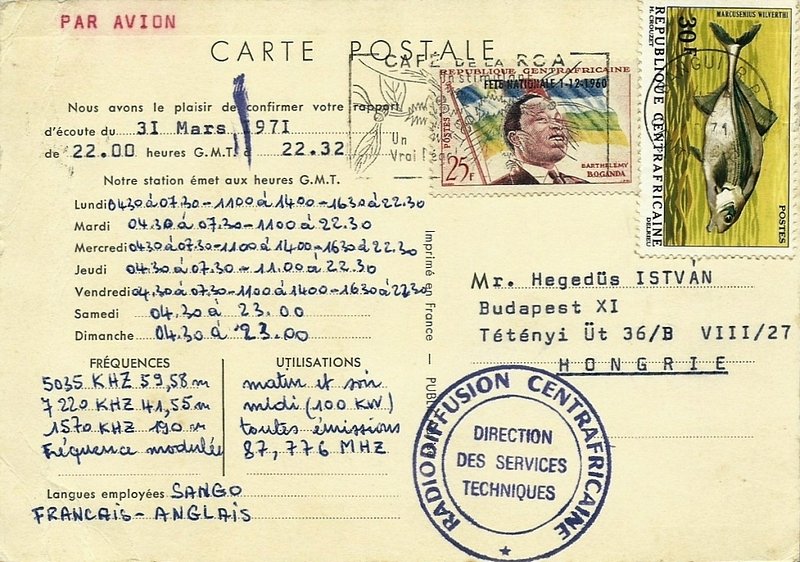 PAR AVION
CARTE POSTALE
CAFÉ DE LA RCA
Un
Vrai
REPUBLIQUE CENTRAFRICAINE
FÊTE NATIONALE 1-12-1960
POSTES
25F
BARTHELEMY
BOGANDA
MARCUSENIUS WILVERTHI
30F
REPUBLIQUE CENTRAFRICAINE
H. CROUZET
DELRIEU
POSTES
Nous avons le plaisir de confirmer votre rapport
d'écoute du 3I Mars I97I
de 22.00 heures G.M.T. à 22.32
Notre station émet aux heures G.M.T.
Lundi 04.30 à 07.30-1100 à 1400-1630 à 22.30
Mardi 04.30 à 07.30-1100 à 22.30
Mercredi 0430 à 07.30-1100 à 1400-1630 à 22.30
Jeudi 04.30 à 07.30-11.00 à 22.30
Vendredi 04.30 à 07.30-1100 à 1400-1630 à 22.30
Samedi 04.30 à 23.00
Dimanche 04.30 à 23.00
FRÉQUENCES
5035 KHZ 59,58 m
7220 KHZ 41,55 m
1570 KHZ 190 m
Fréquence modulée
UTILISATIONS
matin et soir
midi (100 KW)
toutes émissions
87,776 MHZ
Langues employées SANGO
FRANCAIS-ANGLAIS
Imprimé en France —
Mr. Hegedüs ISTVÁN
Budapest XI
Tétényi Üt 36/B VIII/27
HONGRIE
RADIODIFFUSION CENTRAFRICAINE
DIRECTION
DES SERVICES
TECHNIQUES